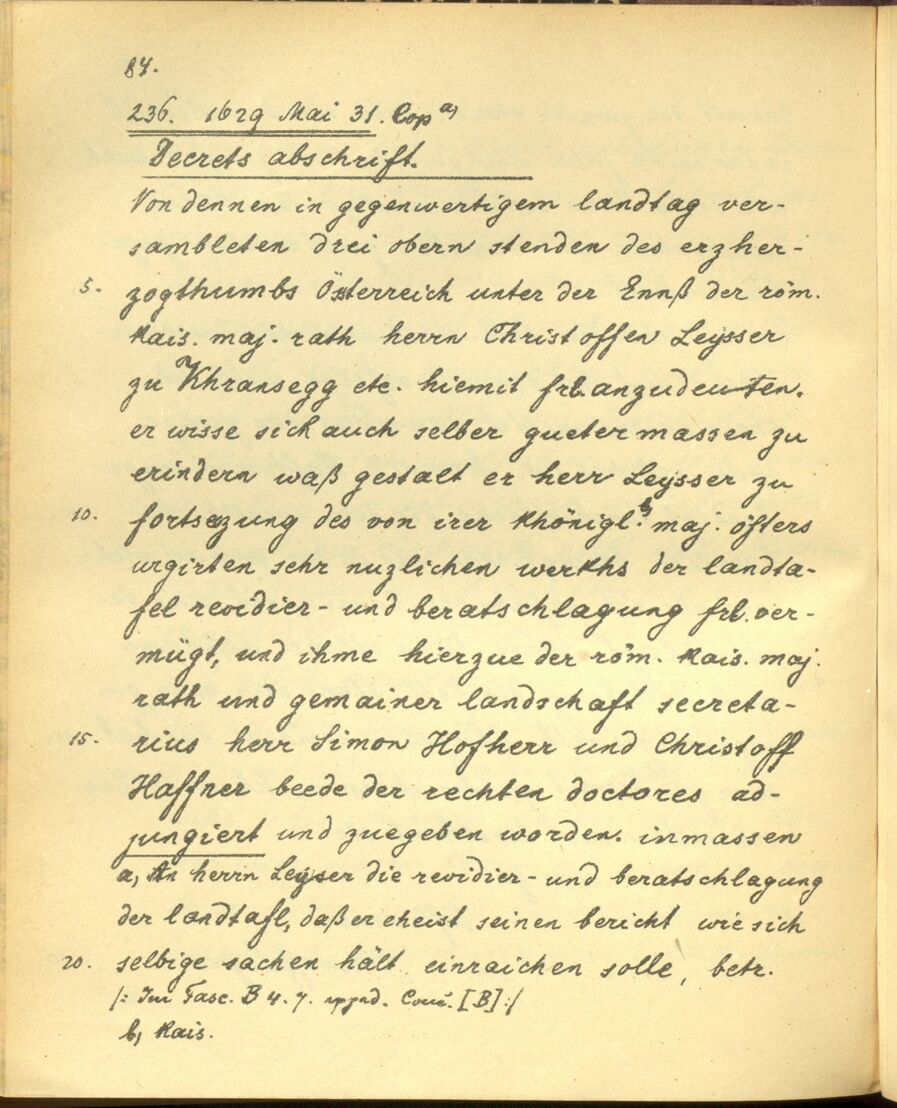 84.
236. 1629 Mai 31. Cop a)
Decrets abschrift.
Von dennen in gegenwertigem landtag ver-
sambleten drei obern stenden des erzher-
5. zogthumbs Österreich unter der Ennß der röm.
Kais. maj. rath herrn Christoffen Leysser
zu Khransegg etc. hiemit frl. anzudeuten.
er wisse sich auch selber guetermassen zu
erindern waß gestalt er herr Leysser zu
10. fortsezung des von irer Khönigl. b) maj. öfters
urgirten sehr nuzlichen werkhs der landta-
fel revidier- und beratschlagung frl. ver-
mügt, und ihme hierzue der röm. Kais. maj.
rath und gemainer landschaft secreta-
15. rius herr Simon Hofherr und Christoff
Haffner beede der rechten doctores ad-
jungiert und zuegeben worden. inmassen
a, An herrn Leyser die revidier- und beratschlagung
der landtafl, daß er eheist seinen bericht wie sich
20. selbige sachen hält einraichen solle, betr.
/: Im Fasc. B 4. 7. [B] :/
b, Kais.